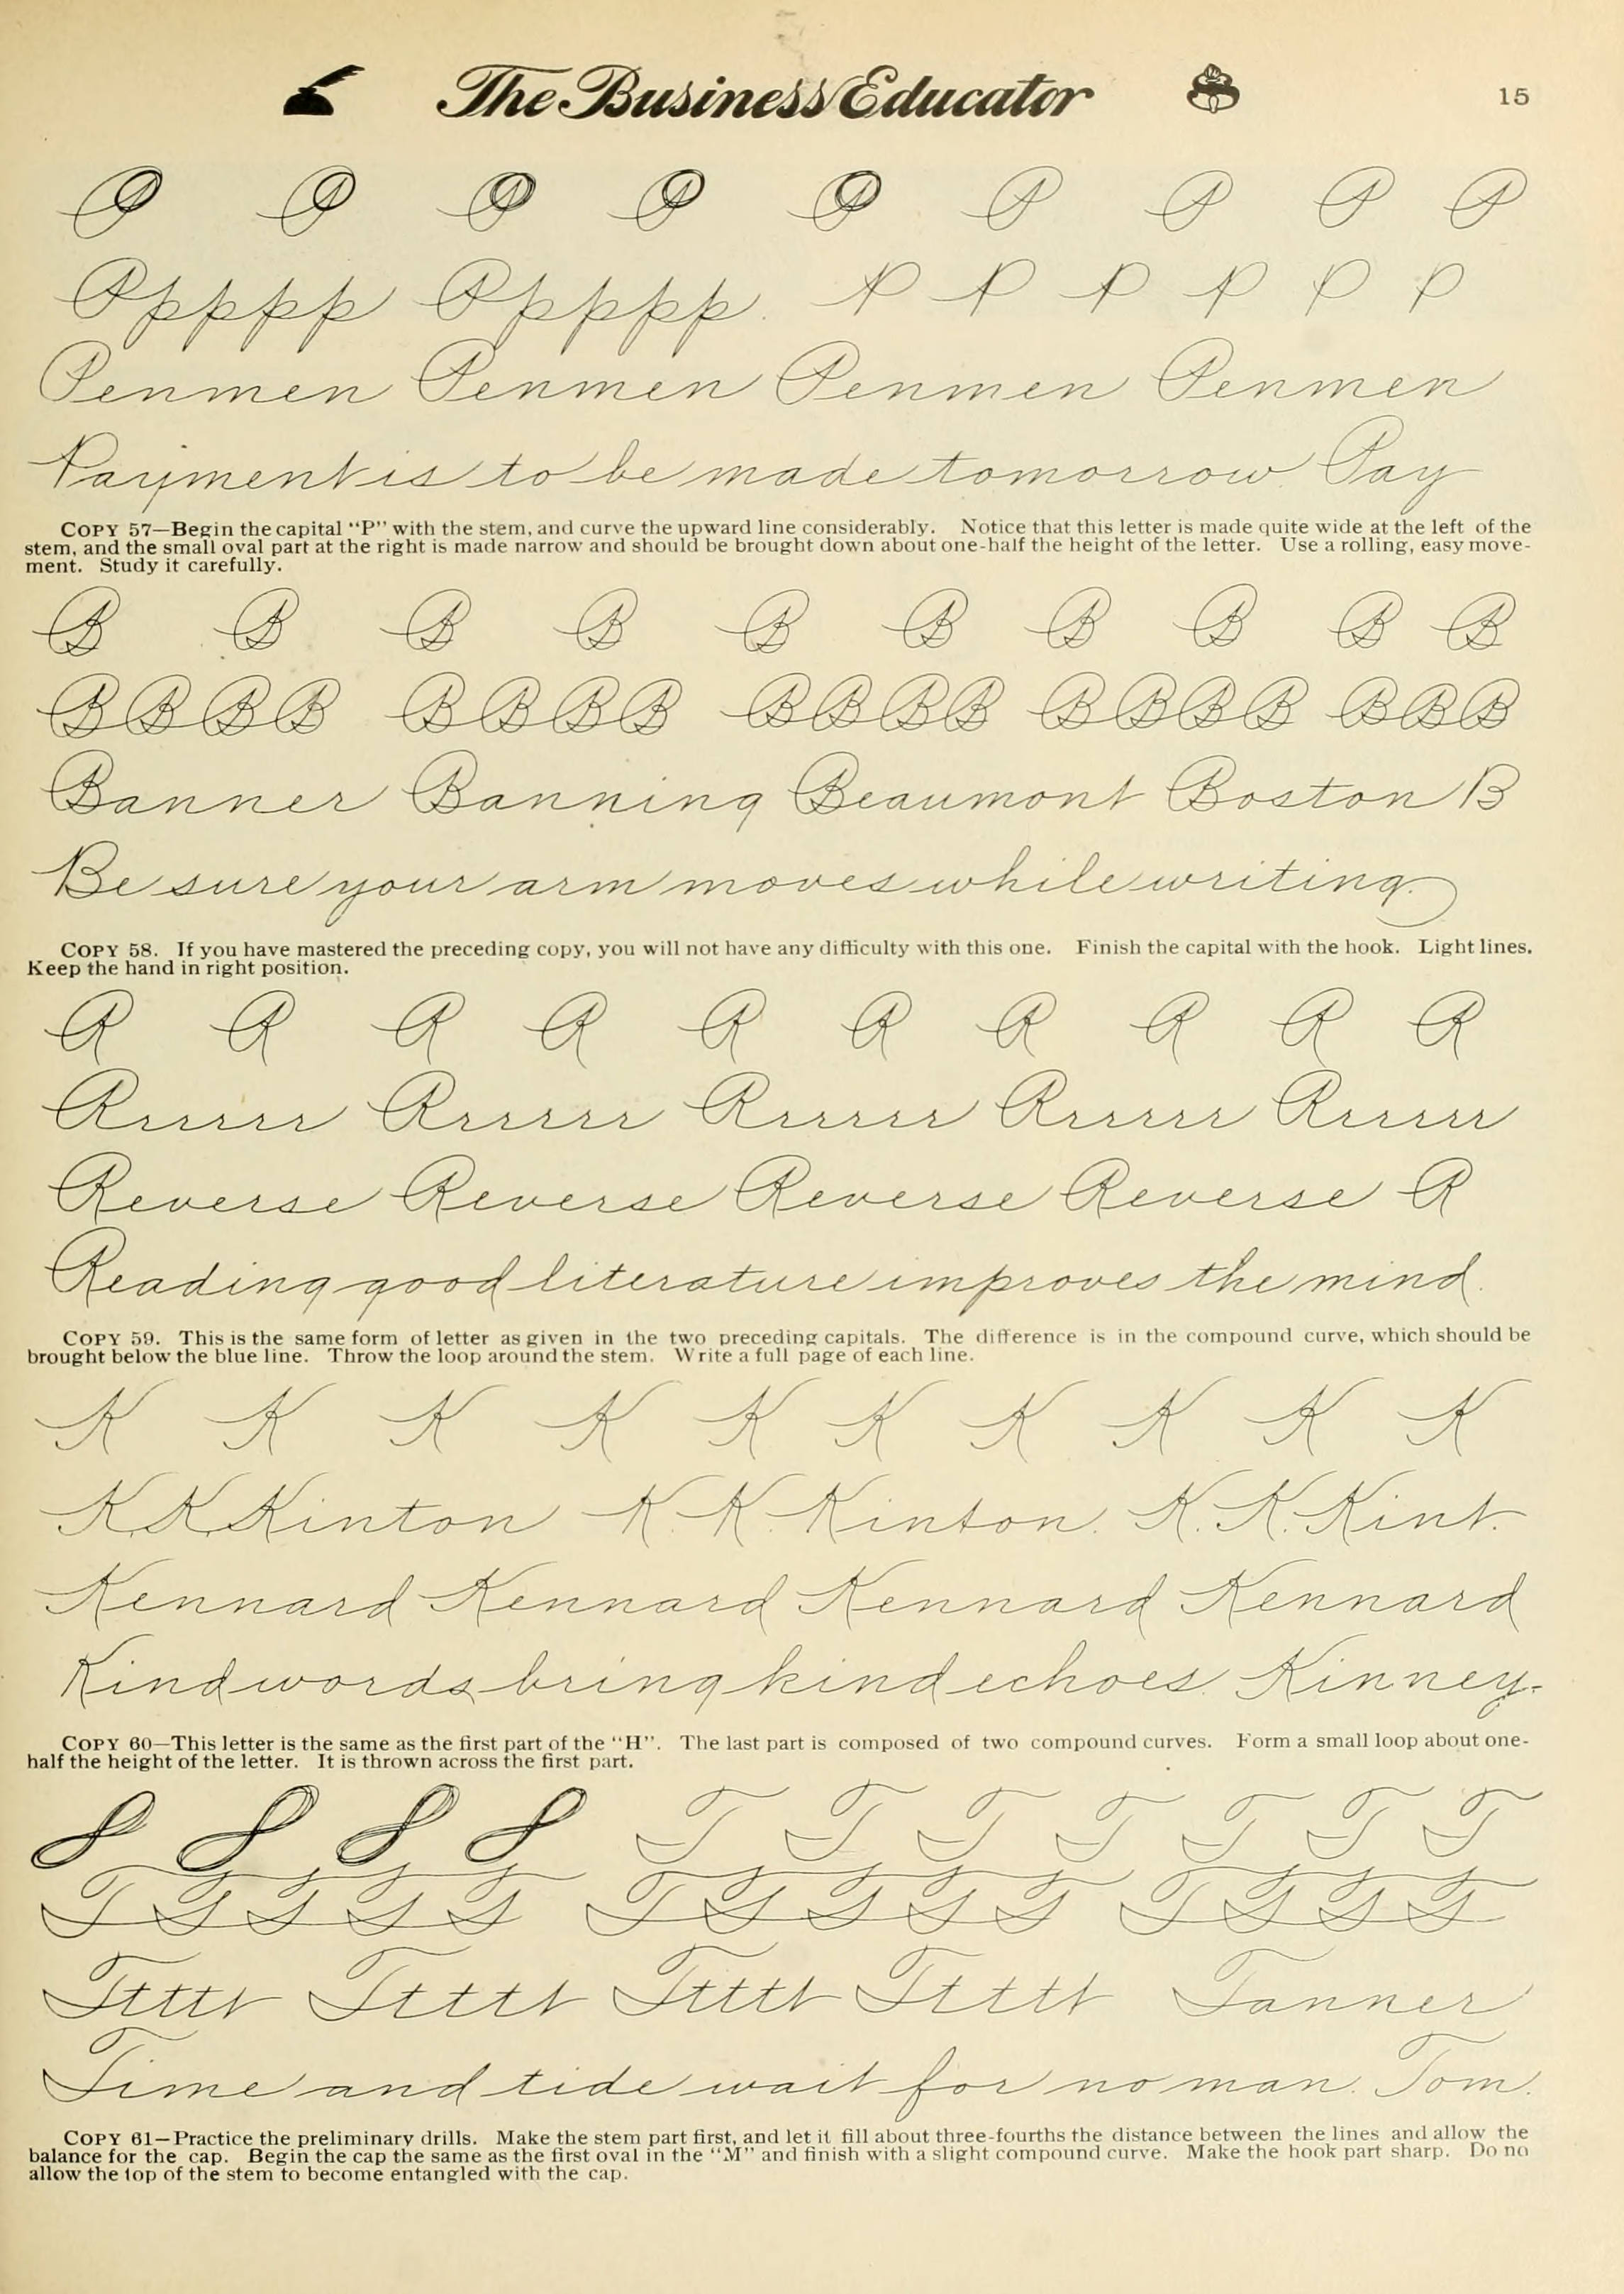 The Business Educator 15
P P P P P P P P P
Ppppp Ppppp. P P P P P P
Penmen Penmen Penmen Penmen
Payment is to be made tomorrow. Pay
COPY 57—Begin the capital "P" with the stem, and curve the upward line considerably. Notice that this letter is made quite wide at the left of the
stem, and the small oval part at the right is made narrow and should be brought down about one-half the height of the letter. Use a rolling, easy move-
ment. Study it carefully.
B B B B B B B B B B
BBBB BBBB BBBB BBBB BBB
Banner Banning Beaumont Boston B
Be sure your arm moves while writing.
COPY 58. If you have mastered the preceding copy, you will not have any difficulty with this one. Finish the capital with the hook. Light lines.
Keep the hand in right position.
R R R R R R R R R R
Rrrrrrr Rrrrrrr Rrrrrrr Rrrrrrr Rrrrrrr
Reverse Reverse Reverse Reverse R
Reading good literature improves the mind.
COPY 59. This is the same form of letter as given in the two preceding capitals. The difference is in the compound curve, which should be
brought below the blue line. Throw the loop around the stem. Write a full page of each line.
K K K K K K K K K K
K K Kinton K. K. Kinton. K. K. Kint.
Kennard Kennard Kennard Kennard
Kind words bring kind echoes. Kinney.
COPY 60—This letter is the same as the first part of the "H". The last part is composed of two compound curves. Form a small loop about one-
half the height of the letter. It is thrown across the first part.
T T T T T T T
TTTTT TTTTT TTTT
Ttttt Ttttt Ttttt Ttttt Tanner
Time and tide wait for no man. Tom.
COPY 61—Practice the preliminary drills. Make the stem part first, and let it fill about three-fourths the distance between the lines and allow the
balance for the cap. Begin the cap the same as the first oval in the "M" and finish with a slight compound curve. Make the hook part sharp. Do no
allow the top of the stem to become entangled with the cap.